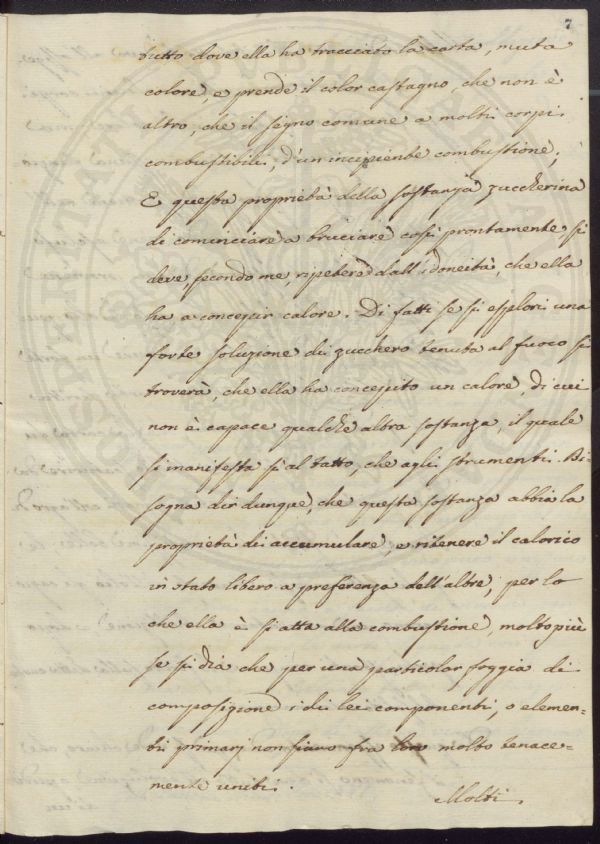 7
tutto dove ella ha tracciato la carta, muta
colore, e prende il color castagno, che non è
altro, che il segno comune a molti corpi
combustibili, d'un incipiente combustione;
E questa proprietà della sostanza zuccherina
di cominciare a bruciare così prontamente, si
deve, secondo me, ripetere dall'idoneità, che ella
ha a concepir calore. Di fatti se si esplori una
forte soluzione di zucchero tenuta al fuoco si
troverà, che ella ha concepito un calore, di cui
non è capace qualche altra sostanza, il quale
si manifesta sì al tatto, che agli strumenti. Bi-
sogna dir dunque, che questa sostanza abbia la
proprietà di accumulare, e ritenere il calorico
in stato libero a preferenza dell'altre; per lo
che ella è sì atta alla combustione, molto più
se si dia che per una particolar foggia di
composizione i di lei componenti, o elemen-
ti primarj non siano fra loro molto tenace-
mente uniti.
Molti